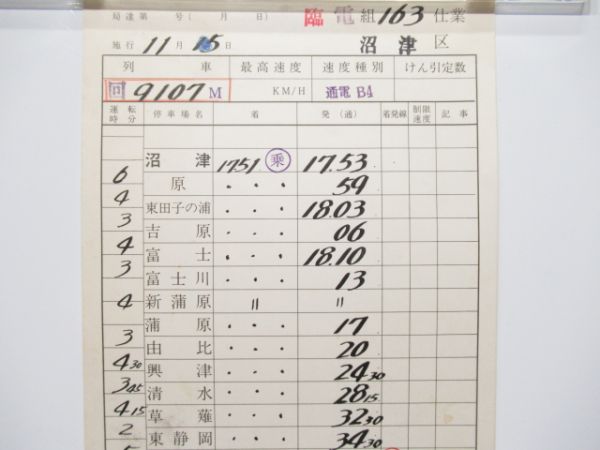 局達第 号( 月 日) 臨 電 組 163 仕業
施行 11月15日 沼津区
列車 最高速度 速度種別 けん引定数
回 9107M KM/H 通電 B4
運転時分 停車場名 着 発(通) 着発線 制限速度 記事
沼津 1751 乗 17.53
6
原 ・ ・ ・ 59
4
東田子の浦 ・ ・ ・ 18.03
3
吉原 ・ ・ ・ 06
4
富士 ・ ・ ・ 18.10
3
富士川 ・ ・ ・ 13
新蒲原 〃 〃
4
蒲原 ・ ・ ・ 17
3
由比 ・ ・ ・ 20
4 30
興津 ・ ・ ・ 24 30
3 45
清水 ・ ・ ・ 28 15
4 15
草薙 ・ ・ ・ 32 30
2
東静岡 ・ ・ ・ 34 30